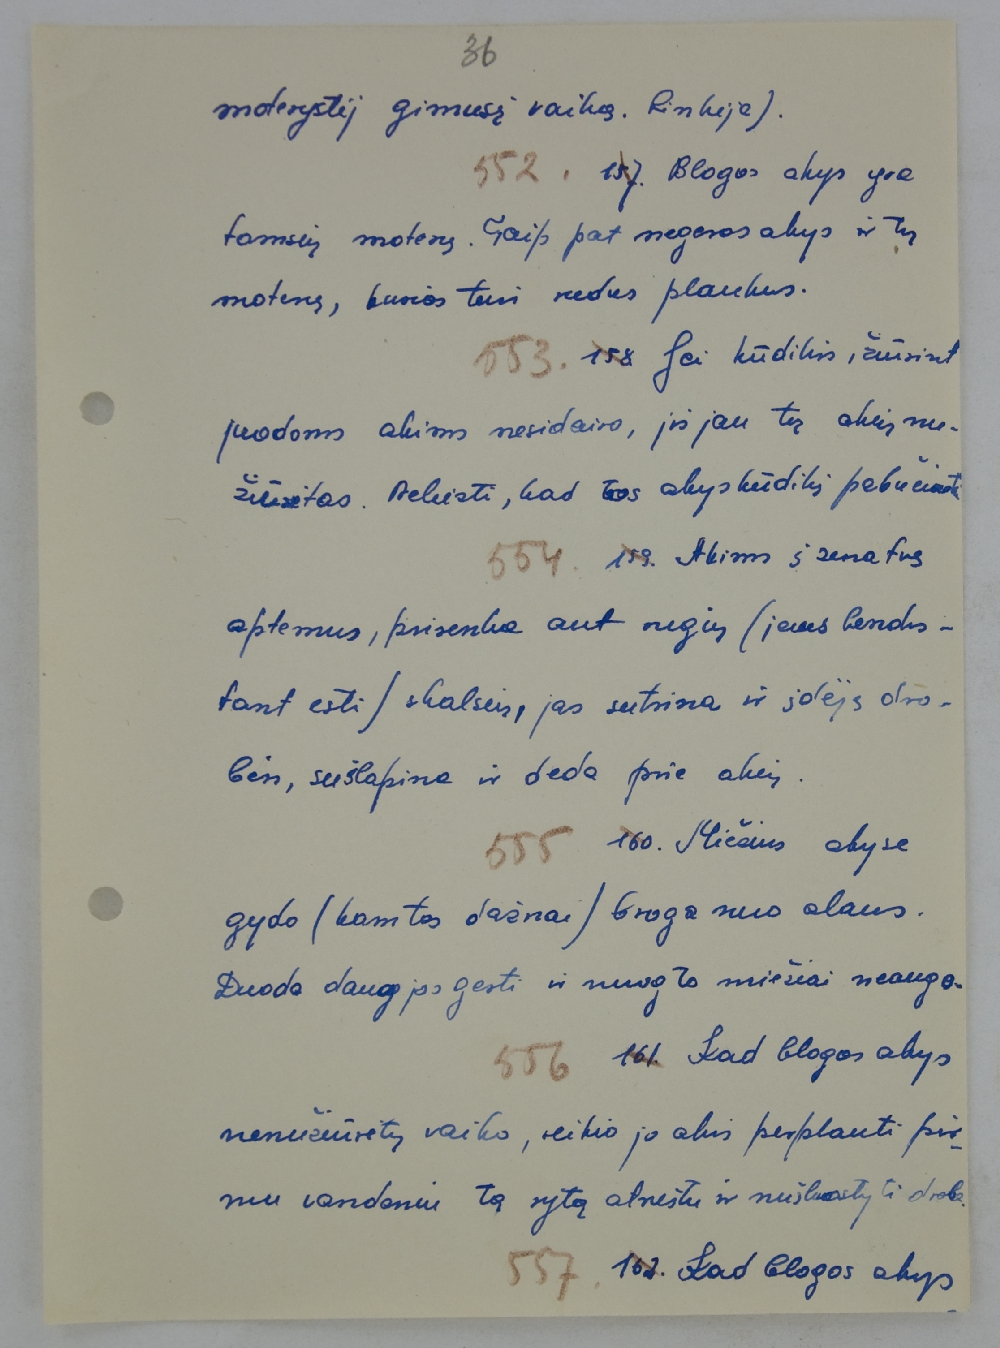 36
moterystėj gimusį vaiką. Rinkėja).
552. 157. Blogos akys yra
tamsių moterų. Taip pat negeros akys ir tų
moterų, kurios turi rudus plaukus.
553. 158 Jei kūdikis, žiūrint
juodoms akims nesidairo, jis jau tų akių nu-
žiūrėtas. Reikėti, kad tos akys kūdikį pabučiuotų
554. 159. Akims į senatvę
aptemus, prisenka ant rugių (javs bendus-
tant esti) skalsių, jas sutrina ir įdėję dro-
bėn, sušlapina ir deda prie akių.
555 160. Miežius akyse
gydo (kamtos dažnai) broga nuo alaus.
Duoda daug jos gerti ir nuog to miežiai neauga.
556 161. Kad blogos akys
nenužiūrėtų vaiko, reikia jo akis perplauti pir-
mu vandeniu tą rytą atneštu ir nušluostyti drobe.
557. 162. Kad blogos akys